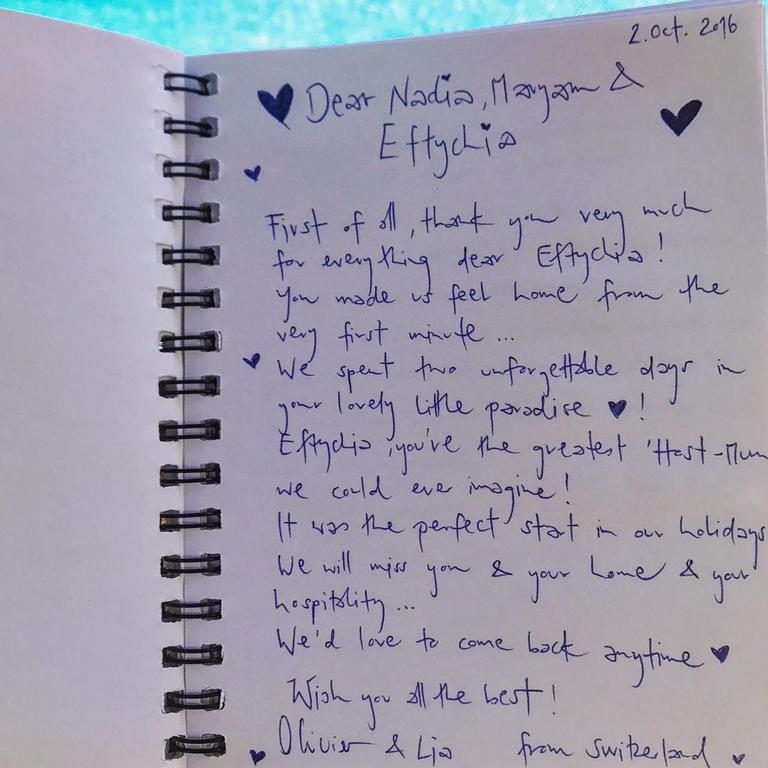 2. Oct. 2016
♥ Dear Nadia, Maryam & ♥
Eftychia
First of all, thank you very much
for everything dear Eftychia!
You made us feel home from the
very first minute ...
♥ We spent two unforgettable days in
your lovely little paradise ♥ !
Eftychia, you've the greatest 'Host-Mum
we could ever imagine!
It was the perfect start in our holidays
We will miss you & your home & your
hospitality ...
We'd love to come back anytime ♥
Wish you all the best!
♥ Olivier & Lia from Switzerland ♥